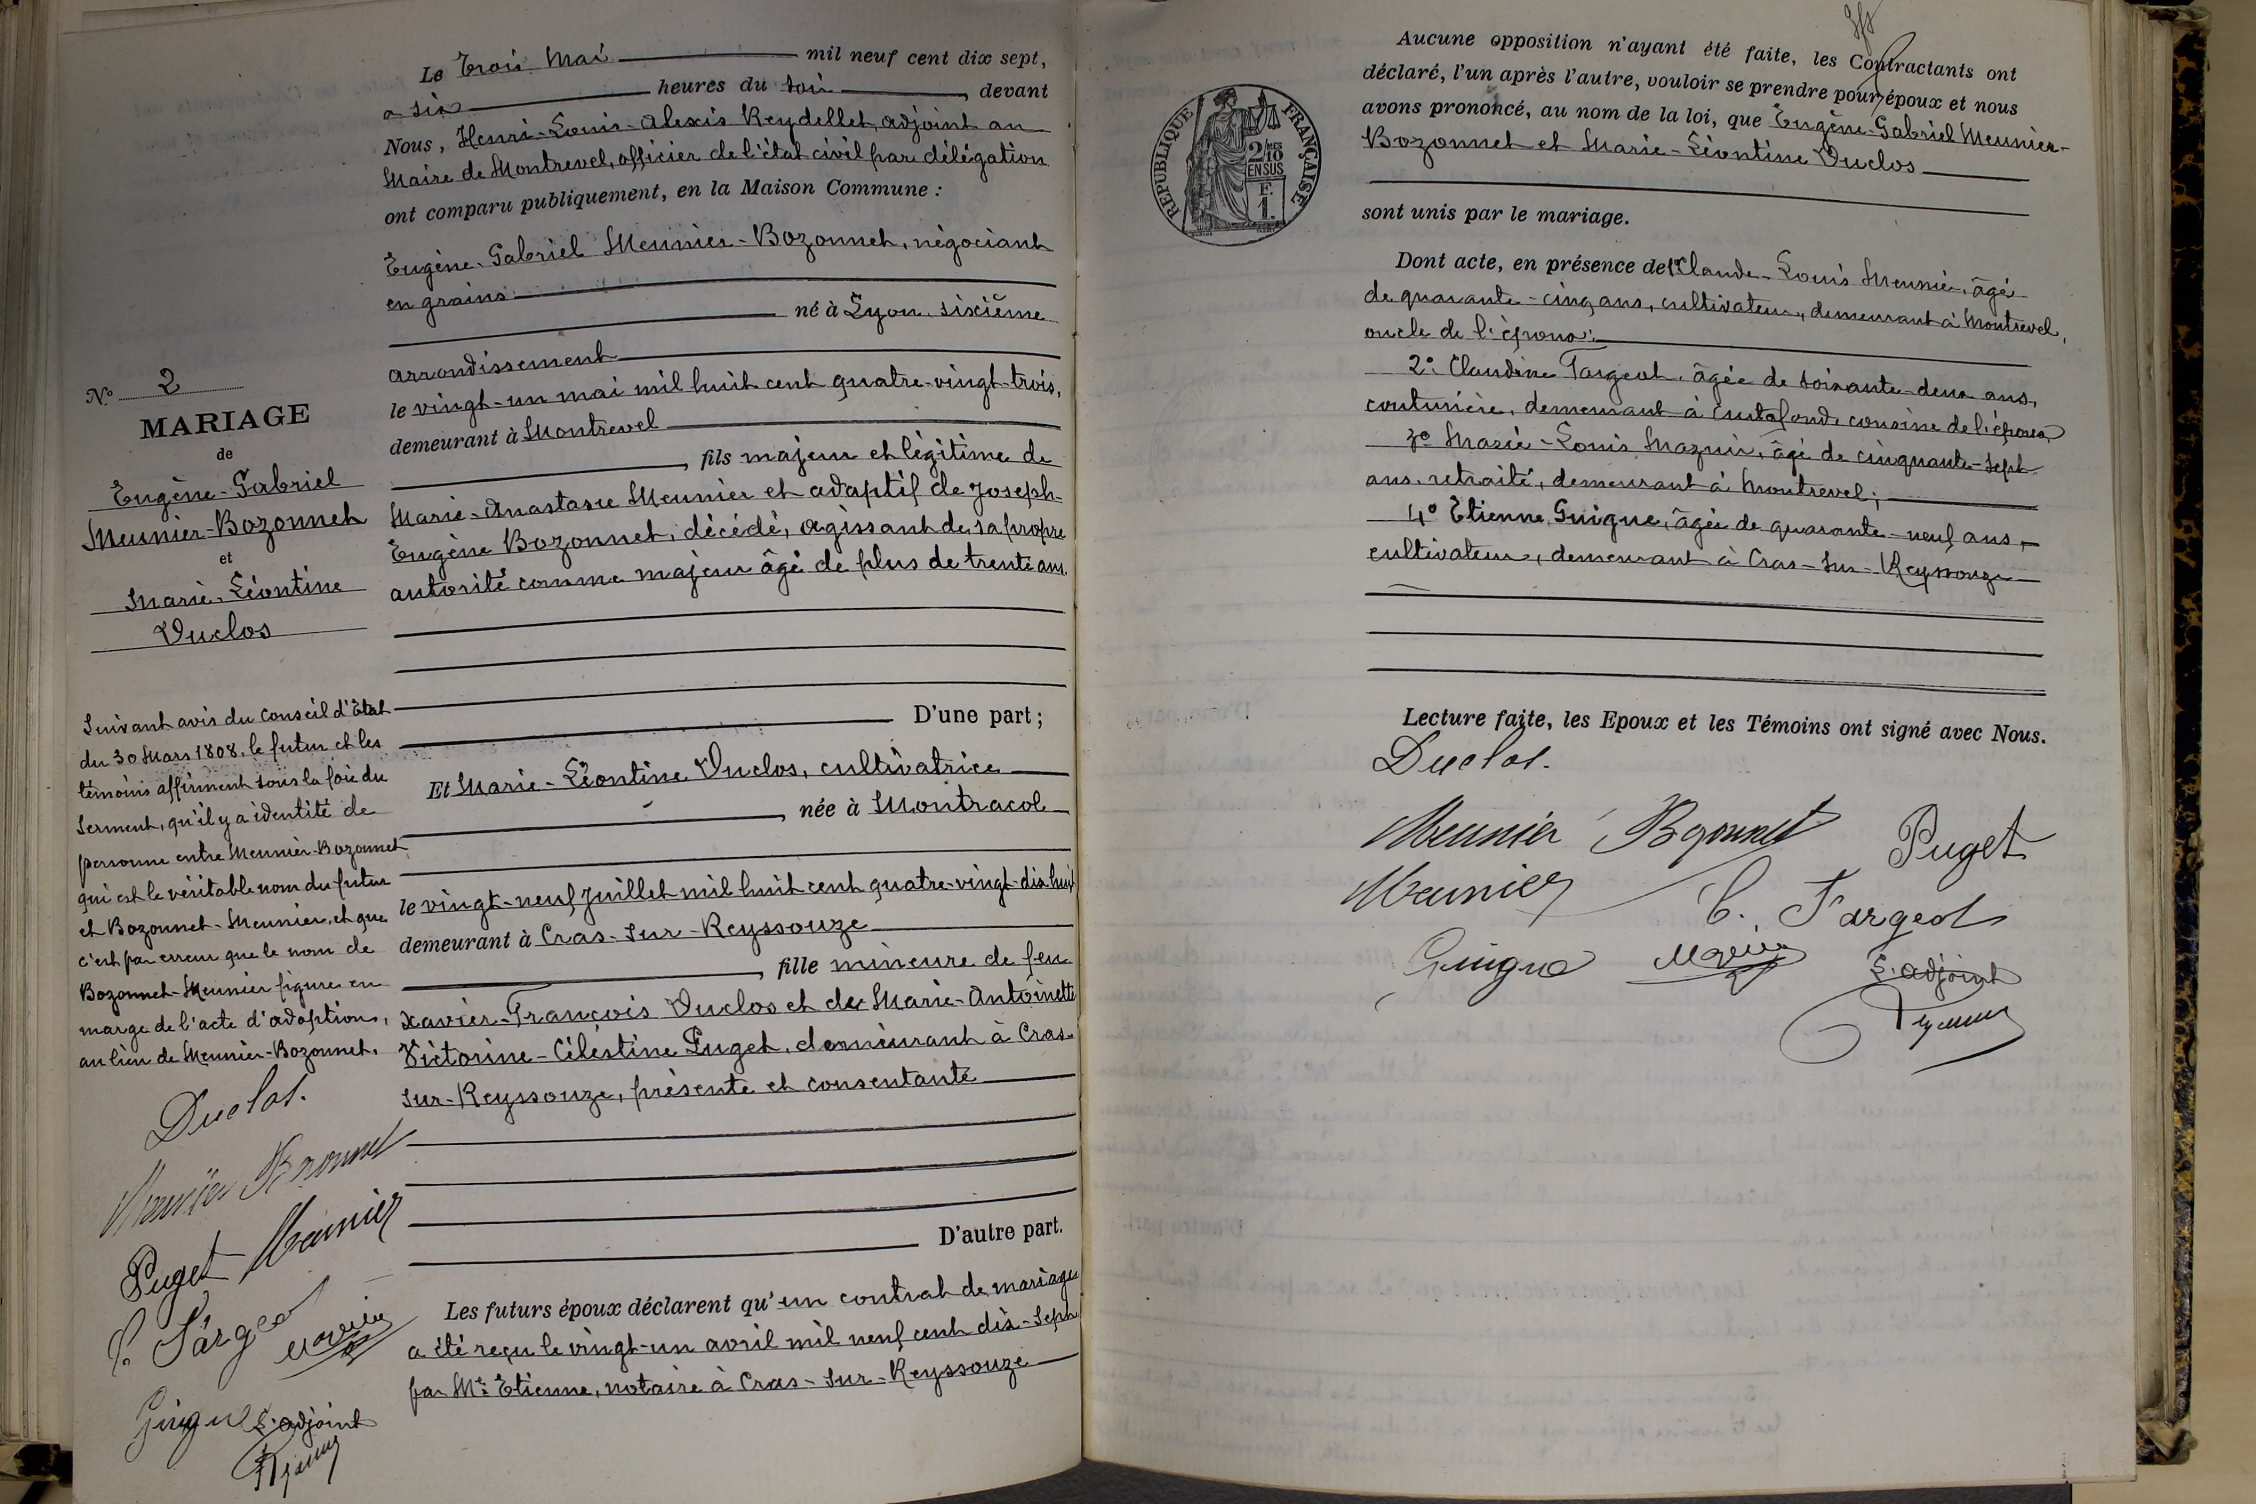 N.º 2
MARIAGE
de
Eugène-Gabriel
Meunier-Bozonnet
et
Marie-Léontine
Duclos
Suivant avis du Conseil d'État
du 30 Mars 1808, le futur et les
témoins affirment sous la foi du
Serment, qu'il y a identité de
personne entre Meunier-Bozonnet
qui est le véritable nom du futur
et Bozonnet-Meunier, et que
c'est par erreur que le nom de
Bozonnet-Meunier figure en
marge de l'acte d'adoption,
au lieu de Meunier-Bozonnet.
Duclos.
Meunier Bozonnet
Puget Meunier
C. Fargeot
Mazuir
Guigue L'adjoint
Le Trois Mai mil neuf cent dix sept,
à six heures du soir, devant
Nous, Henri-Louis-Alexis Reydellet, adjoint au
Maire de Montrevel, officier de l'état civil par délégation
ont comparu publiquement, en la Maison Commune :
Eugène-Gabriel Meunier-Bozonnet, négociant
en grains
né à Lyon, sixième
arrondissement
le vingt-un mai mil huit cent quatre-vingt-trois,
demeurant à Montrevel
, fils majeur et légitime de
Marie-Anastasie Meunier et adoptif de Joseph-
Eugène Bozonnet, décédé, agissant de sa propre
autorité comme majeur âgé de plus de trente ans.
D'une part ;
Et Marie-Léontine Duclos, cultivatrice
, née à Montracol
le vingt-neuf juillet mil huit cent quatre-vingt-dix huit
demeurant à Cras-sur-Reyssouze
, fille mineure de feu
Xavier-François Duclos et de Marie-Antoinette
Victorine-Célestine Puget, demeurant à Cras-
sur-Reyssouze, présente et consentante
D'autre part.
Les futurs époux déclarent qu'un contrat de mariage
a été reçu le vingt-un avril mil neuf cent dix-sept
par Me Etienne, notaire à Cras-sur-Reyssouze
Aucune opposition n'ayant été faite, les Contractants ont
déclaré, l'un après l'autre, vouloir se prendre pour époux et nous
avons prononcé, au nom de la loi, que Eugène-Gabriel Meunier-
Bozonnet et Marie-Léontine Duclos
sont unis par le mariage.
RÉPUBLIQUE FRANÇAISE
2/10 EN SUS
F.
1.
Dont acte, en présence de 1º Claude-Louis Meunier, âgé
de quarante-cinq ans, cultivateur, demeurant à Montrevel,
oncle de l'époux ;
2º Claudine Fargeot, âgée de soixante-deux ans,
couturière, demeurant à Curtafond, cousine de l'épouse,
3º Marie-Louis Mazuir, âgé de cinquante-sept
ans, retraité, demeurant à Montrevel ;
4º Etienne Guigue, âgé de quarante-neuf ans,
cultivateur, demeurant à Cras-sur-Reyssouze
Lecture faite, les Epoux et les Témoins ont signé avec Nous.
Duclos.
Meunier Bozonnet
Puget
Meunier
C. Fargeot
Guigue Mazuir
L'adjoint